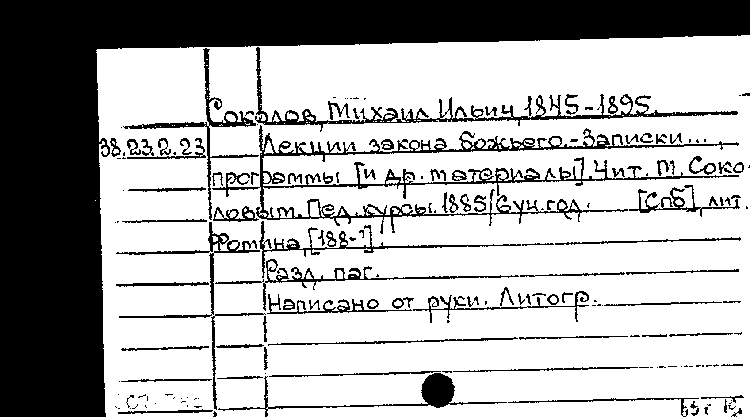 Соколов, Михаил Ильич, 1845-1895.
38.23.2.23 Лекции закона божьего.-Записки...,
программы [и др. материалы]. Чит. М. Соко-
ловым. Пед. курсы. 1885/6 уч. год. [Спб], лит.
Фомина, [188-?].
Разд. паг.
Написано от руки. Литогр.